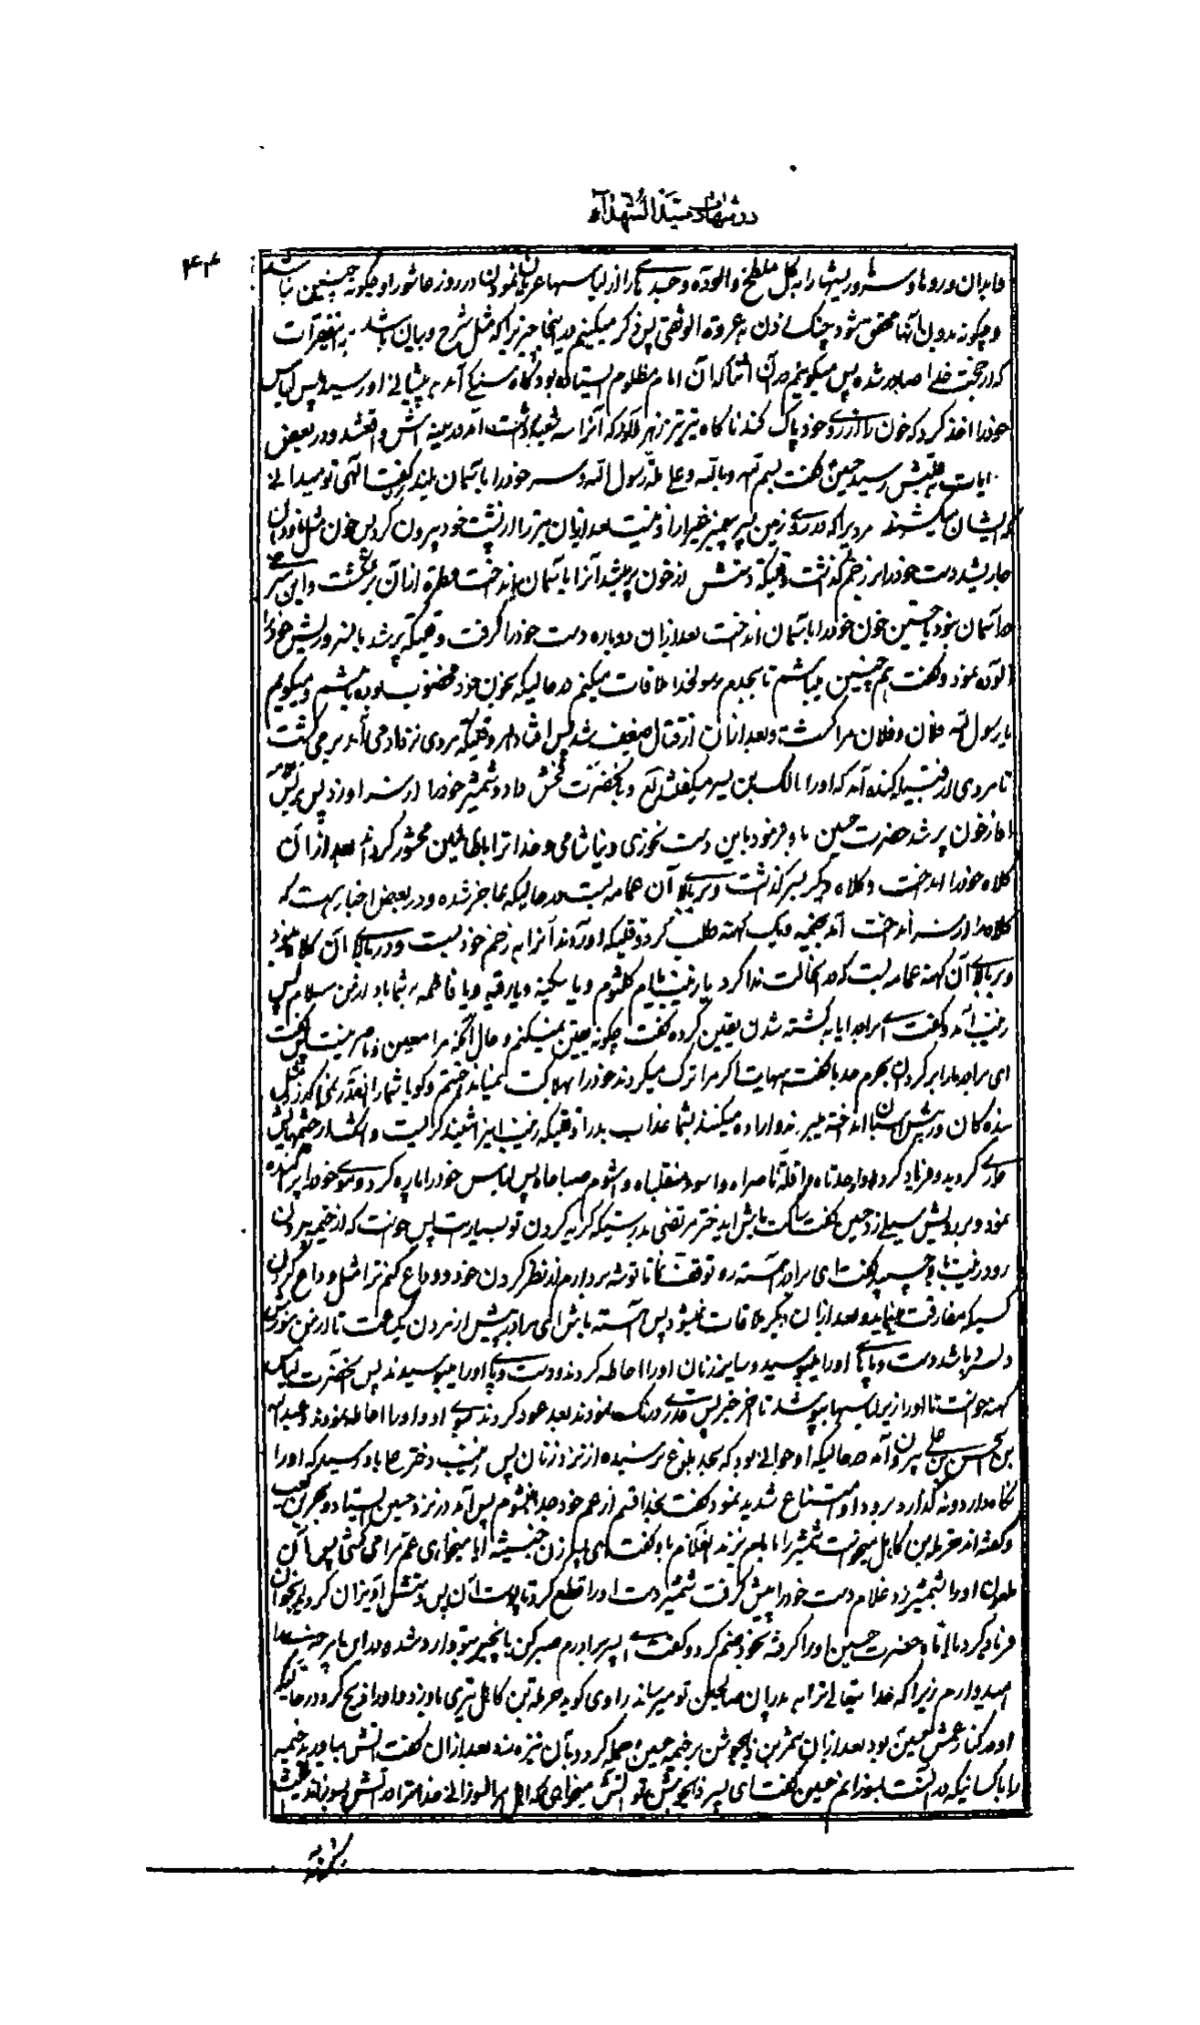 در شهادت سید الشهداء
۴۴
و ابدان و روها و سر و ریشها را به گل ملطخ و آلوده و جسدهای را از لباسها عریان نمودن در روز عاشورا و چگونه چنین نباشد
و چگونه بدون آنها محقق شود چنگ زدن به عروة الوثقی پس ذکر میکنیم در اینجا چیزیرا که مثل شرح و بیان باشد به فقرات
که از حجت خدا صادر شده پس میگوئیم در آن اثنا که آن امام مظلوم ایستاده بود ناگاه سنگی آمد به پیشانی او رسید پس لباس
خود را اخذ کرد که خون را از روی خود پاک کند ناگاه تیر زهر آلود که آنرا سه شعبه داشت آمد در سینه اش واقع شد و در بعض
روایات به قلبش رسید حسین گفت بسم الله و بالله و علی ملة رسول الله و سر خود را بآسمان بلند کرد گفت الهی تو میدانی
که ایشان میکشند مردیرا که در روی زمین پسر پیغمبر غیر از او نیست بعد از آن تیر را از پشت خود بیرون کرد پس خون مثل ناودان
جاری شد دست خود را بر زخم گذاشت وقتیکه دستش از خون پر شد آنرا بآسمان انداخت قطره از آن بر نگشت و این سرخی
در آسمان نبود تا حسین خون خود را بآسمان انداخت بعد از آن دوباره دست خود را گرفت وقتیکه پر شد بآن سر و ریش خود را
آلوده نمود و گفت هم چنین میباشم تا بجدم رسولخدا ملاقات میکنم در حالیکه بخون خود مخضوب بوده باشم و میگویم
یا رسول الله فلان و فلان مرا کشت و بعد از آن از قتال ضعیف شد پس وقتیکه مردی نزد او می آمد بر می گشت
تا مردی از قبیله کنده آمد که او را مالک بن یسر میگفتند و بحضرت فحش داد و شمشیر خود را بر سر او زد پس برنس
او از خون پر شد حضرت حسین باو فرمود باین دست نخوری و نیاشامی و خدا ترا با ظالمین محشور کرداند بعد از آن
کلاه خود را انداخت و کلاه دیگر بسر گذاشت و بر بالای آن عمامه بست در حالیکه عاجز شده و در بعض اخبار است که
کلاه را از سر انداخت آمد بخیمه و یک کهنه طلب کرد وقتیکه آوردند آنرا به زخم خود بست و در بالای آن کلاه نمود
و بر بالای آن کهنه عمامه بست که در انحالت ندا کرد یا زینب یا ام کلثوم و یا سکینه و یا رقیه و یا فاطمه بر شما باد از من سلام پس
زینب آمد و گفت ای برادر آیا به کشته شدن یقین کرده گفت چگونه یقین نمیکنم و حال آنکه مرا معین و ناصر نیست پس گفت
ای برادر ما را برگردان بحرم جد ما گفت هیهات اگر مرا ترک میکردند خود را بهلاکت نمی انداختم و گویا شما را
بندگان در پیش اسبان انداخته میبرند و اراده میکنند بشما عذاب بد را وقتیکه زینب اینرا شنید گریست و اشک از چشمهایش
جاری گردید و فریاد کرد واوحدتاه واقلة ناصراه واسوء منقلباه واشوم صباحاه پس لباس خود را پاره کرد و موی خود را پراکنده
نمود و بر رویش سیلی زد حسین گفت ساکت باش ای دختر مرتضی بدرستیکه گریه کردن تو بسیار است پس خواست که از خیمه بیرون
رود زینب باو چسپید گفت ای برادر آهسته رو توقف نما تا توشه بردارم از نظر کردن خود و وداع کنم ترا مثل وداع کردن
کسیکه مفارقت مینماید و بعد از آن دیگر ملاقات نمیشود پس آهسته باش ای برادر پیش از مردن یک ساعت تا از من سوزش
دل سرد باشد دست و پای او را میبوسید و سایر زنان او را احاطه کردند و دست و پای او را میبوسیدند پس آنحضرت لباس
کهنه خواست تا او را زیر لباسها بپوشد تا آخر خبر پس قدری درنگ نمودند بعد عود کردند بسوی او و او را احاطه نمودند و عبدالله
بن الحسن بن علی بیرون آمد در حالیکه او جوانی بود که بحد بلوغ نرسیده از نزد زنان پس زینب دختر علی باو رسید که او را
نگاهدارد و نه گذارد برود او امتناع شدید نمود گفت بخدا قسم از عم خود جدا نمیشوم پس آمد در نزد حسین ایستاد و بحر بن کعب
و گفته اند حرملة بن کاهل میخواست شمشیر را بامام بزند آن غلام باو گفت ای پسر زن خبیثه آیا میخواهی عم مرا می کشی پس آن
ملعون او را بشمشیر زد غلام دست خود را پیش گرفت شمشیر دست او را قطع کرد تا پوست آن پس دستش آویزان گردید آنجوان
فریاد کرد یا اماه حضرت حسین او را گرفته بخود ضم کرد و گفت ای پسر برادرم صبر کن بآنچیز بتو وارد شده و برای ما بر خیر خدا
امیدوارم زیرا که خدا تعالی ترا به پدران صالحین تو میرساند راوی گوید حرملة بن کاهل تیری باو زد و او را ذبح کرد در حالیکه
او در کنار عمش حسین بود بعد از آن شمر بن ذیجوشن بر خیمه حسین حمله کرد و بآن نیزه زد بعد از آن گفت آتش بیاورید خیمه
را با کسانیکه در آنست بسوزانم حسین گفت ای پسر ذیجوشن تو آتش میخواهی که اهل مرا بسوزانی خدا ترا در آتش بسوزاند